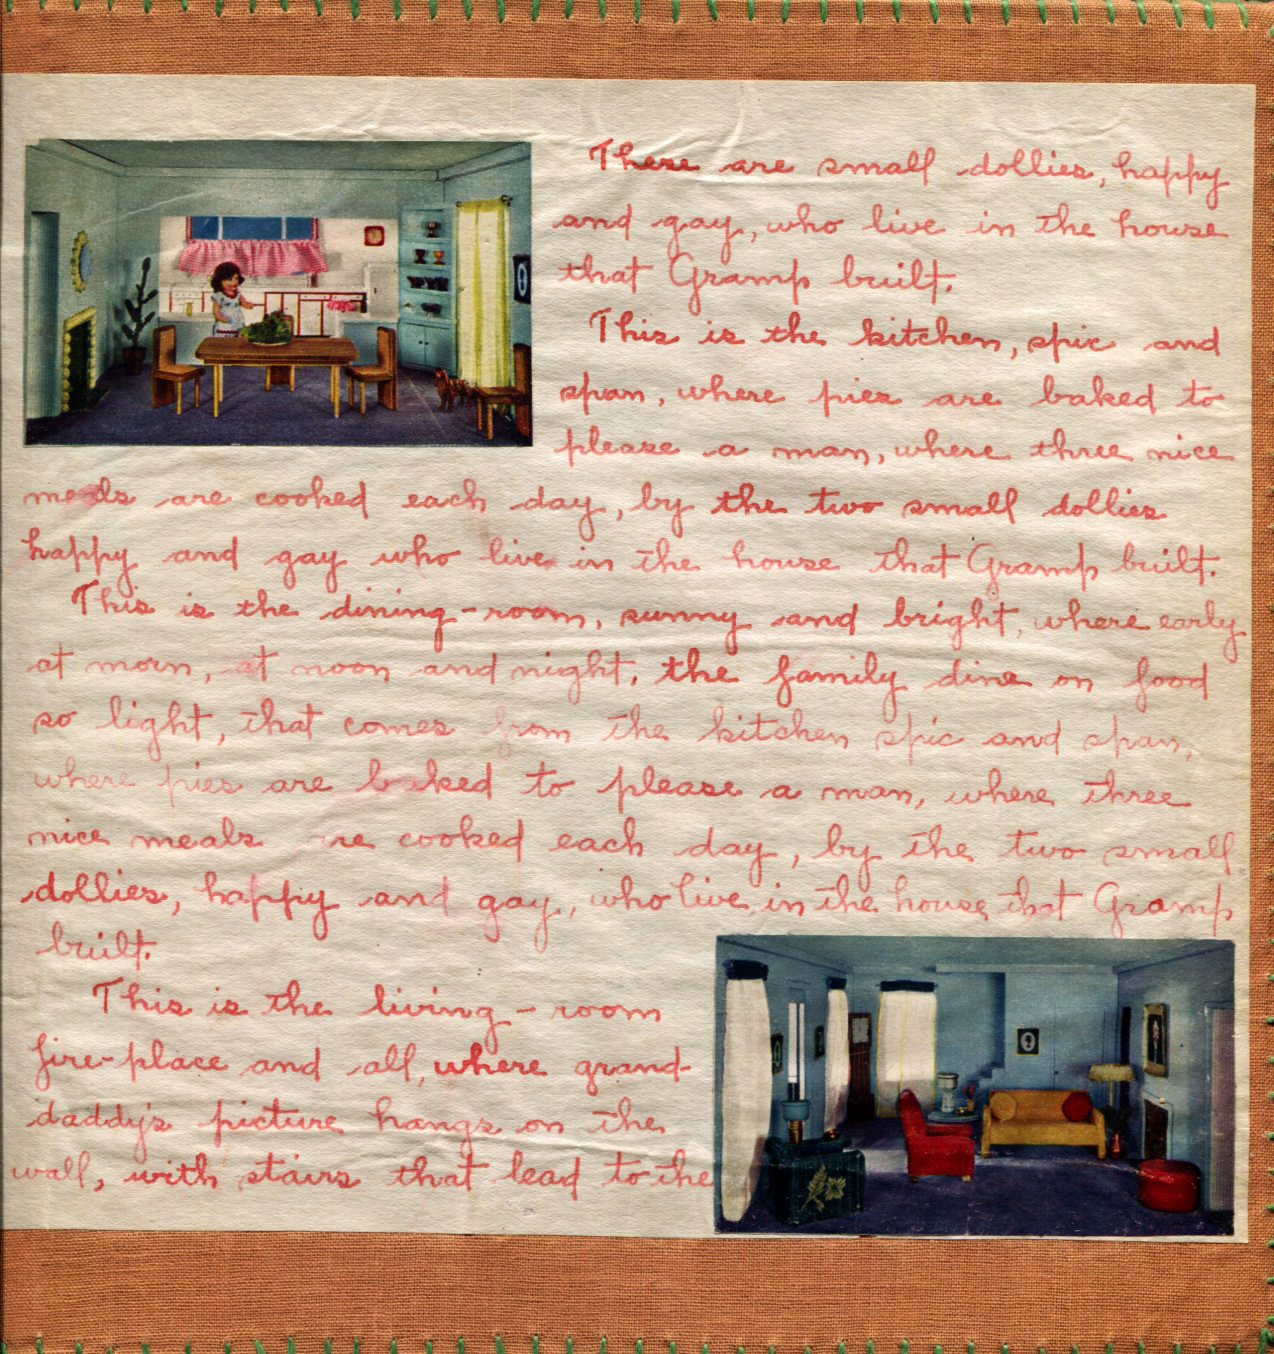 These are small dollies, happy
and gay, who live in the house
that Gramp built.
This is the kitchen, spic and
span, where pies are baked to
please a man, where three nice
meals are cooked each day, by the two small dollies
happy and gay who live in the house that Gramp built.
This is the dining-room, sunny and bright, where early
at morn, at noon and night, the family dine on food
so light, that comes from the kitchen spic and span,
where pies are baked to please a man, where three
nice meals are cooked each day, by the two small
dollies, happy and gay, who live in the house that Gramp
built.
This is the living-room
fire-place and all, where grand-
daddy's picture hangs on the
wall, with stairs that lead to the